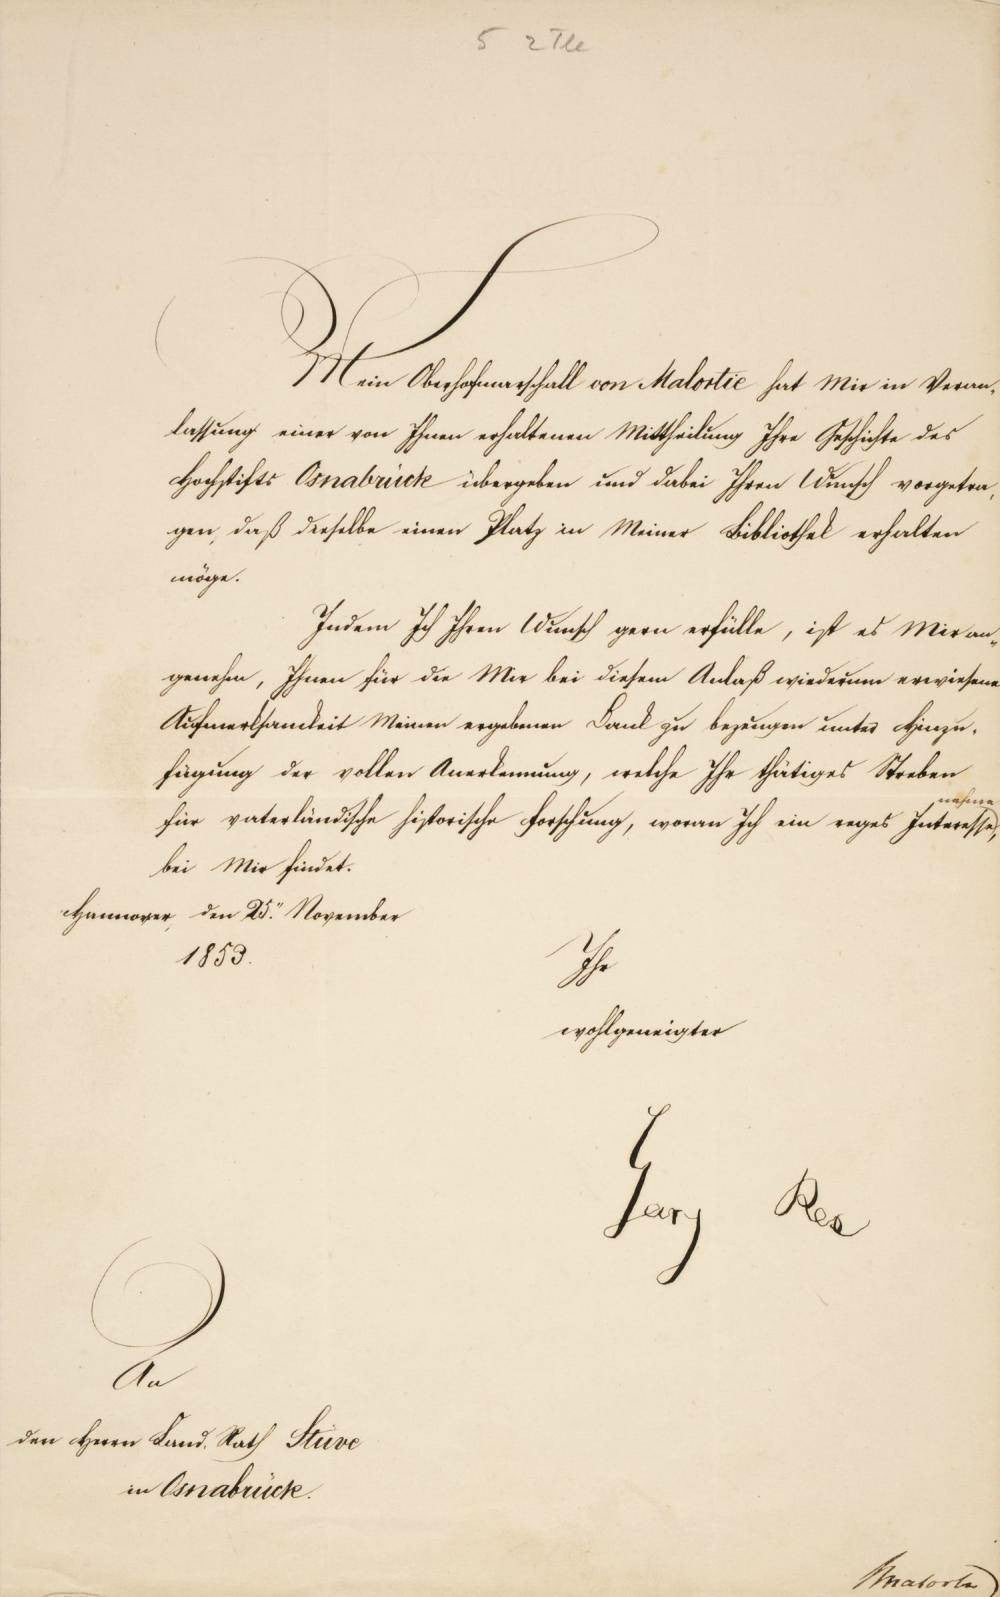 5 2 Tle
Mein Oberhofmarschall von Malortie hat Mir in Veran-
lassung einer von Ihnen erhaltenen Mittheilung Ihre Geschichte des
Hochstifts Osnabrück übergeben und dabei Ihren Wunsch vorgetra-
gen, daß dieselbe einen Platz in Meiner Bibliothek erhalten
möge.
Indem Ich Ihren Wunsch gern erfülle, ist es Mir an-
genehm, Ihnen für die Mir bei diesem Anlaß wiederum erwiesene
Aufmerksamkeit Meinen ergebenen Dank zu bezeugen unter Hinzu-
fügung der vollen Anerkennung, welche Ihr thätiges Streben
nehme
für vaterländische historische Forschung, woran Ich ein reges Interesse,
bei Mir findet.
Hannover, den 25. November
1853.
Ihr
wohlgeneigter
Georg Rex
An
den Herrn Land. Rath Stüve
in Osnabrück.
Malortie